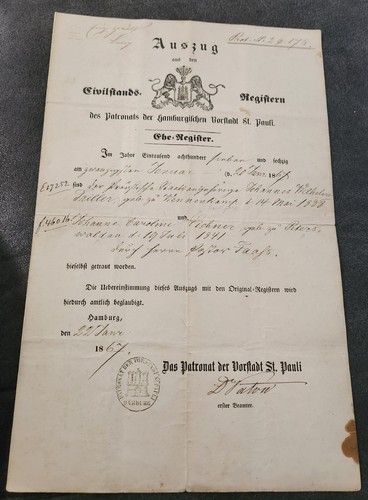 Auszug
aus den
Civilstands- Registern
des Patronats der Hamburgischen Vorstadt St. Pauli.
Ehe-Register.
Im Jahre Eintausend achthundert sieben und sechzig
am zwanzigsten Januar (d. 20 Jan. 1867)
sind der Preußische Staatsangehörige Johannes Wilhelm
geb zu d 14 Mai 1838
und
Johanna Caroline geb zu Peters-
waldau d 19 Juli 1841
durch Herrn Pastor
hieselbst getraut worden.
Die Uebereinstimmung dieses Auszugs mit den Original-Registern wird
hiedurch amtlich beglaubigt.
Hamburg,
den 22 Janr
1867.
Das Patronat der Vorstadt St. Pauli
erster Beamter.